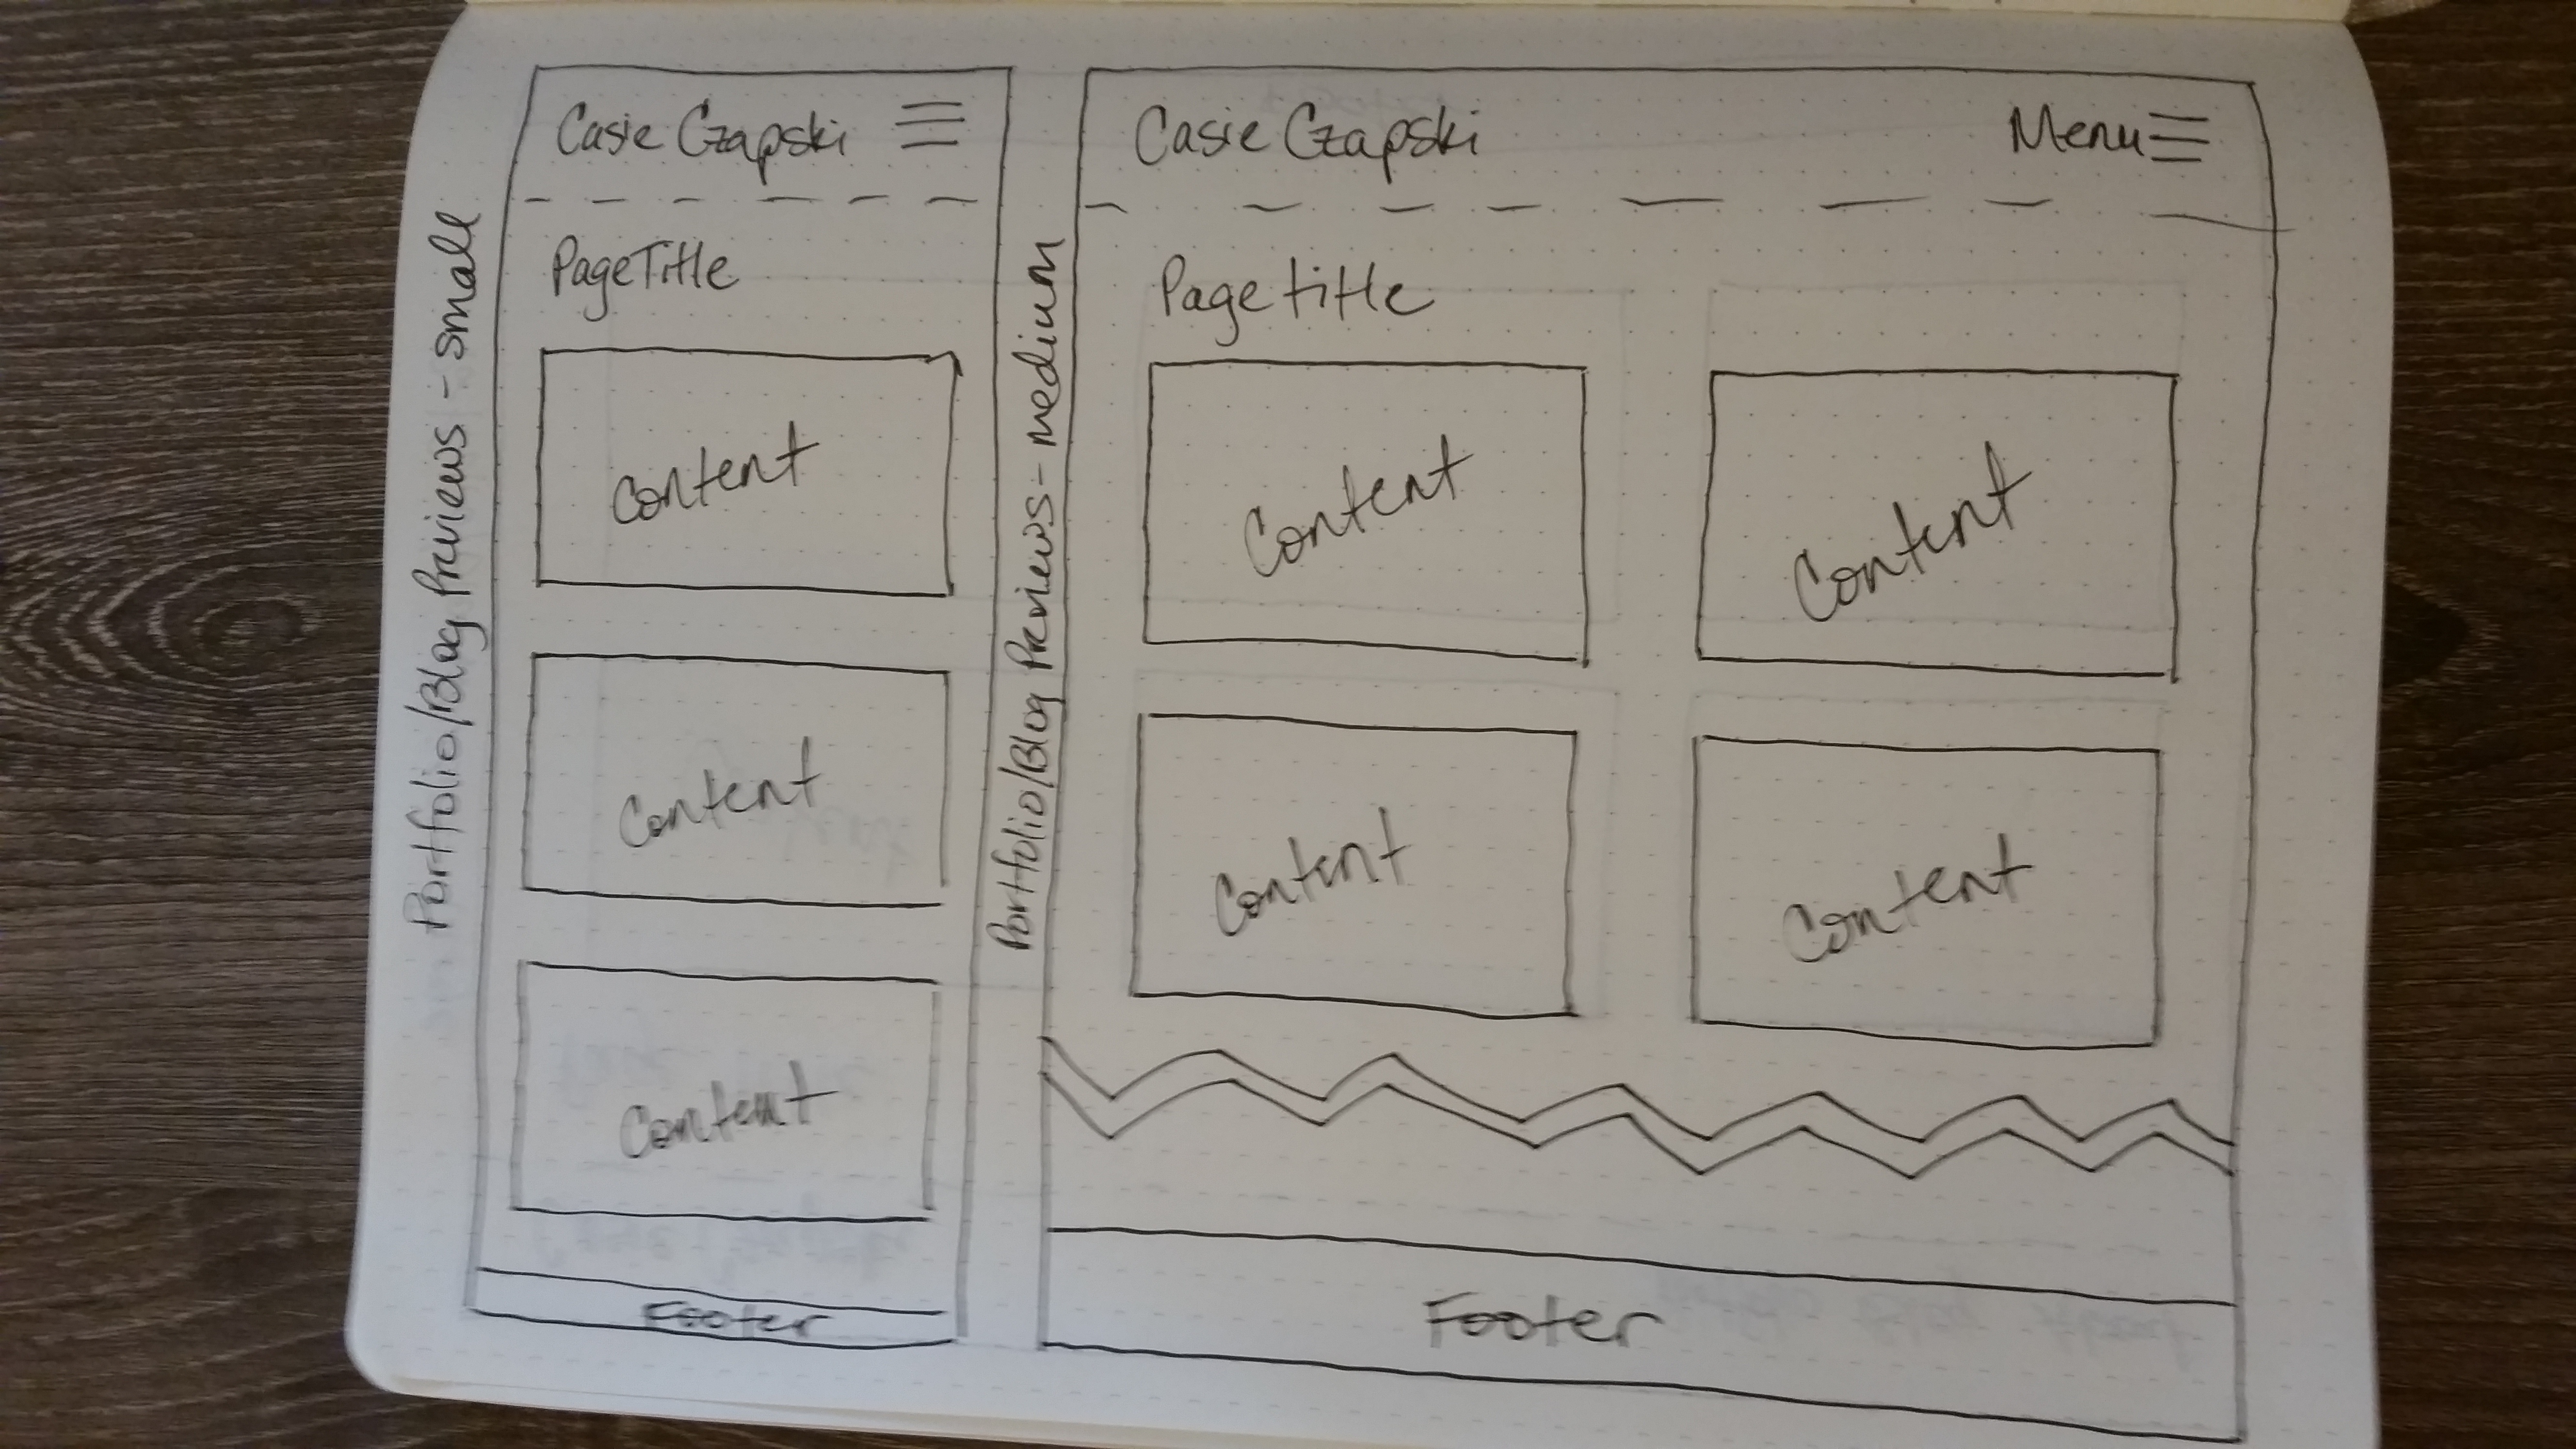 Portfolio/Blog Previews - small
Casie Czapski
PageTitle
Content
Content
Content
Footer
Portfolio/Blog Previews - medium
Casie Czapski Menu
Page title
Content Content
Content Content
Footer